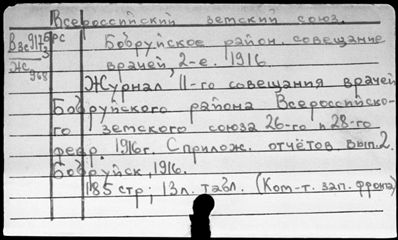 Всероссийский земский союз.
Бобруйское район. совещание
врачей, 2-е. 1916.
Журнал II-го совещания врачей
Бобруйского района Всероссийско-
го земского союза 26-го и 28-го
февр. 1916 г. С прилож. отчётов вып. 2.
Бобруйск, 1916.
185 стр; 13 л. табл. (Ком-т. зап. фронта)